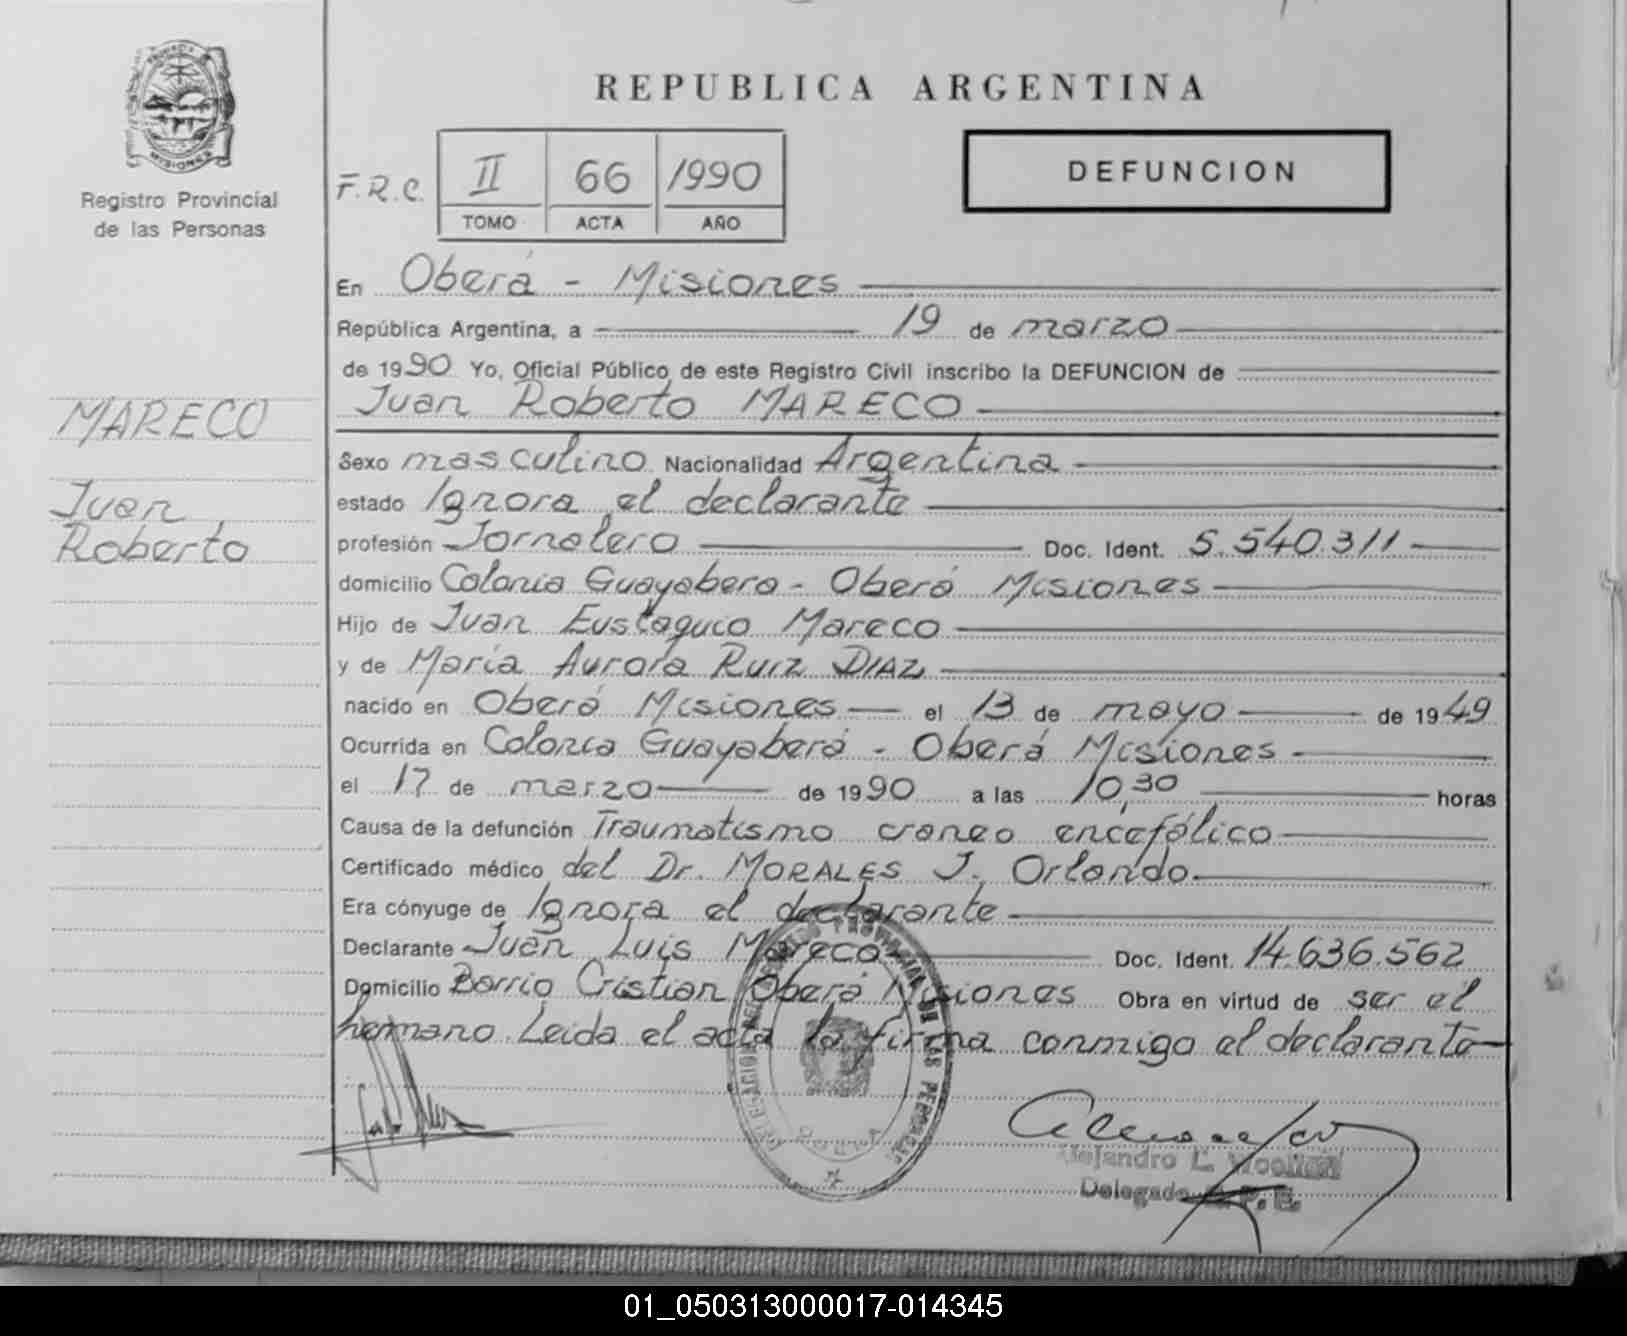 PROVINCIA DE
MISIONES
Registro Provincial
de las Personas
MARECO
Juan
Roberto
REPUBLICA ARGENTINA
F.R.C.
II 66 1990
TOMO ACTA AÑO
DEFUNCION
En Oberá - Misiones
República Argentina, a 19 de marzo
de 1990 Yo, Oficial Público de este Registro Civil inscribo la DEFUNCION de
Juan Roberto MARECO
Sexo masculino Nacionalidad Argentina
estado Ignora el declarante
profesión Jornalero Doc. Ident. 5.540.311
domicilio Colonia Guayabera - Oberá Misiones
Hijo de Juan Eustaquio Mareco
y de María Aurora Ruiz DIAZ
nacido en Oberá Misiones el 13 de mayo de 1949
Ocurrida en Colonia Guayaberá - Oberá Misiones
el 17 de marzo de 1990 a las 10,30 horas
Causa de la defunción Traumatismo craneo encefálico
Certificado médico del Dr. MORALES J. Orlando
Era cónyuge de Ignora el declarante
Declarante Juan Luis Mareco Doc. Ident. 14.636.562
Domicilio Barrio Cristian Oberá Misiones Obra en virtud de ser el
hermano. Leida el acta la firma conmigo el declarante
DELEGACION REGISTRO PROVINCIAL DE LAS PERSONAS
Alejandro E.
Delegado R. P. P.
01_050313000017-014345